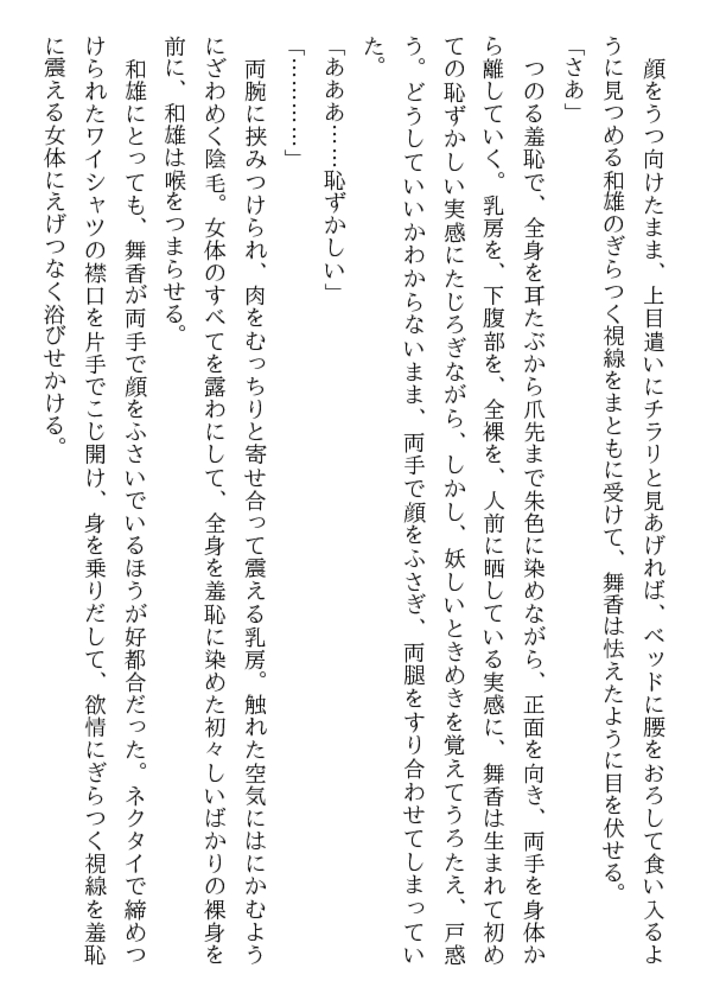 顔をうつ向けたまま、上目遣いにチラリと見あげれば、ベッドに腰をおろして食い入るよ
うに見つめる和雄のぎらつく視線をまともに受けて、舞香は怯えたように目を伏せる。
「さあ」
つのる羞恥で、全身を耳たぶから爪先まで朱色に染めながら、正面を向き、両手を身体か
ら離していく。乳房を、下腹部を、全裸を、人前に晒している実感に、舞香は生まれて初め
ての恥ずかしい実感にたじろぎながら、しかし、妖しいときめきを覚えてうろたえ、戸惑
う。どうしていいかわからないまま、両手で顔をふさぎ、両腿をすり合わせてしまってい
た。
「あああ……恥ずかしい」
「…………」
両腕に挟みつけられ、肉をむっちりと寄せ合って震える乳房。触れた空気にはにかむよう
にざわめく陰毛。女体のすべてを露わにして、全身を羞恥に染めた初々しいばかりの裸身を
前に、和雄は喉をつまらせる。
和雄にとっても、舞香が両手で顔をふさいでいるほうが好都合だった。ネクタイで締めつ
けられたワイシャツの襟口を片手でこじ開け、身を乗りだして、欲情にぎらつく視線を羞恥
に震える女体にえげつなく浴びせかける。